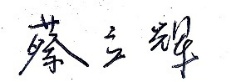 蔡立辉